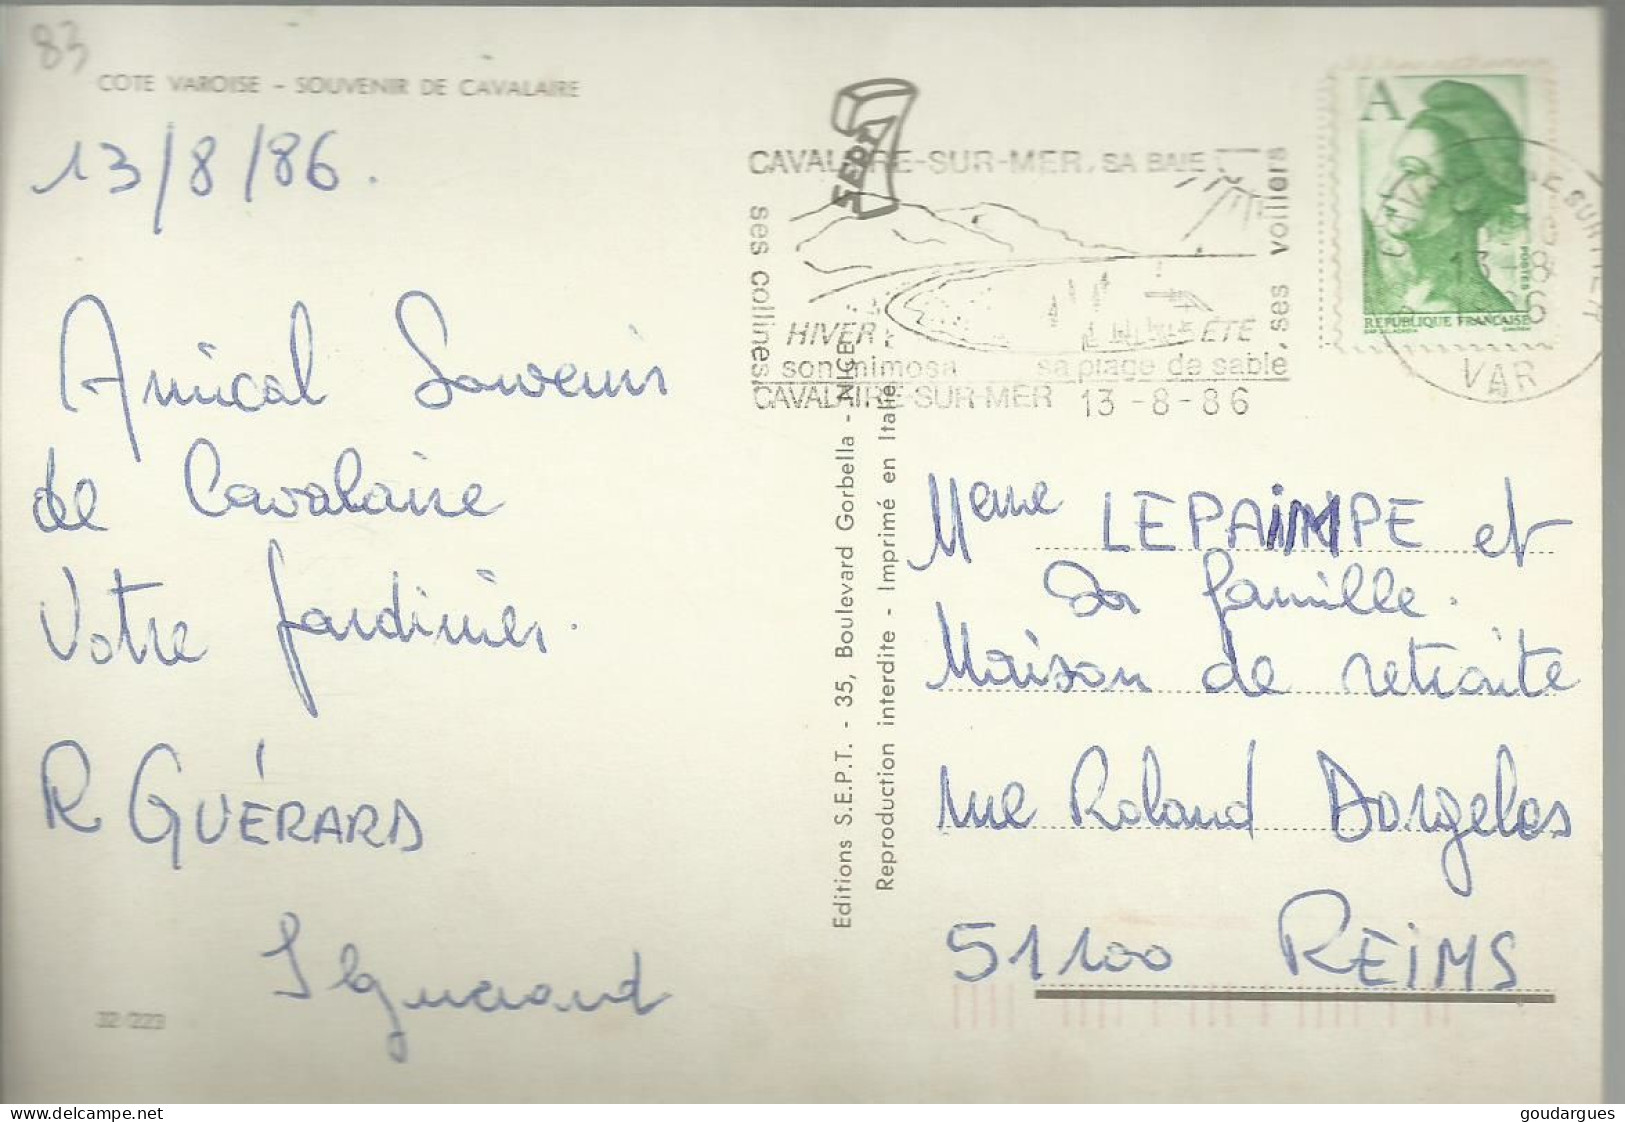 83
COTE VAROISE - SOUVENIR DE CAVALAIRE
13/8/86.
Amical Souvenir
de Cavalaire
Votre Jardinier.
R GUÉRARD
32/223
SEPT
CAVALAIRE-SUR-MER, SA BAIE
ses collines,
, ses voiliers
HIVER
ÉTÉ
son mimosa
sa plage de sable
CAVALAIRE-SUR-MER 13-8-86
A
POSTES
REPUBLIQUE FRANÇAISE
13-8
86
VAR
Editions S.E.P.T. - 35, Boulevard Gorbella - NICE
Reproduction interdite - Imprimé en Italie
Meme LEPAIMPE et
sa famille.
Maison de retraite
rue Roland Dorgelos
51100 REIMS
delcampe.net
goudargues